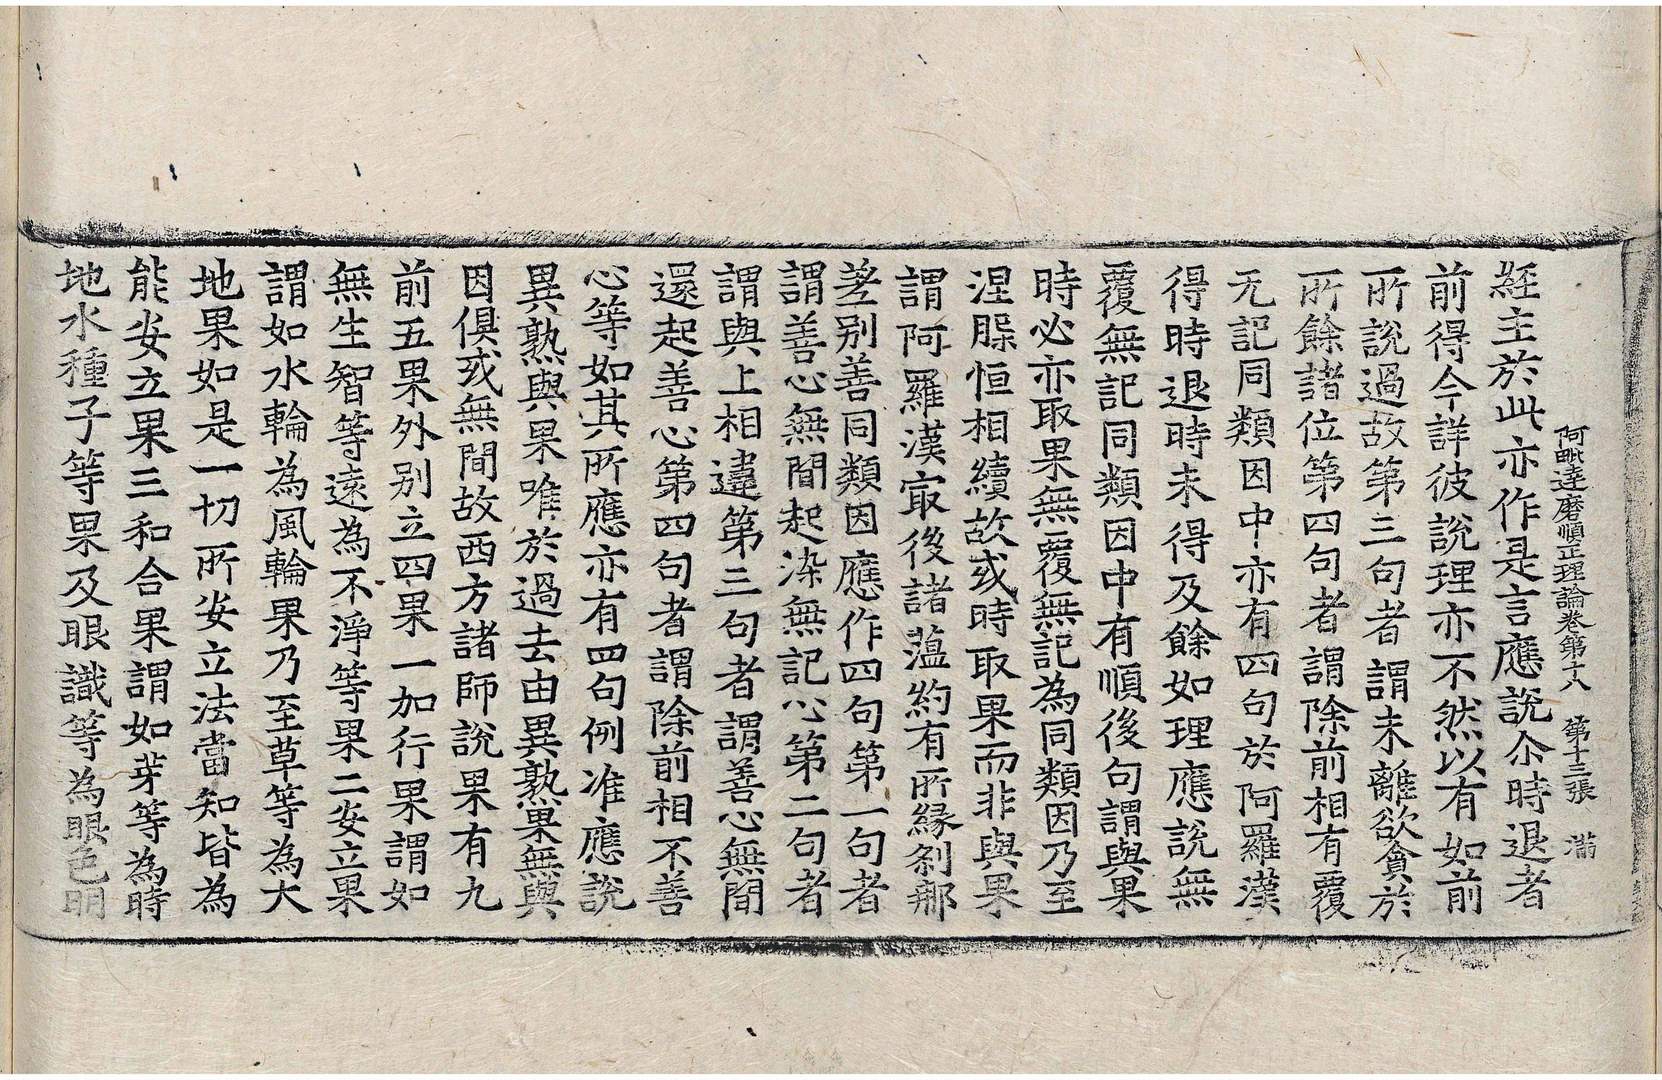 阿毗達磨順正理論卷第十八 第十三張 滿
経主於此亦作是言應說尒時退者
前得今詳彼說理亦不然以有如前
所說過故第三句者謂未離欲貪於
所餘諸位第四句者謂除前相有覆
无記同類因中亦有四句於阿羅漢
得時退時未得及餘如理應說無
覆無記同類因中有順後句謂與果
時必亦取果無覆無記為同類因乃至
涅槃恒相續故或時取果而非與果
謂阿羅漢㝡後諸蕰約有所緣剎那
差別善同類因應作四句第一句者
謂善心無間起染無記心第二句者
謂與上相違第三句者謂善心無間
還起善心第四句者謂除前相不善
心等如其所應亦有四句例准應說
異熟與果唯於過去由異熟果無與
因俱或無間故西方諸師說果有九
前五果外別立四果一加行果謂如
無生智等遠為不淨等果二安立果
謂如水輪為風輪果乃至草等為大
地果如是一切所安立法當知皆為
能安立果三和合果謂如芽等為時
地水種子等果及眼識等為眼色明